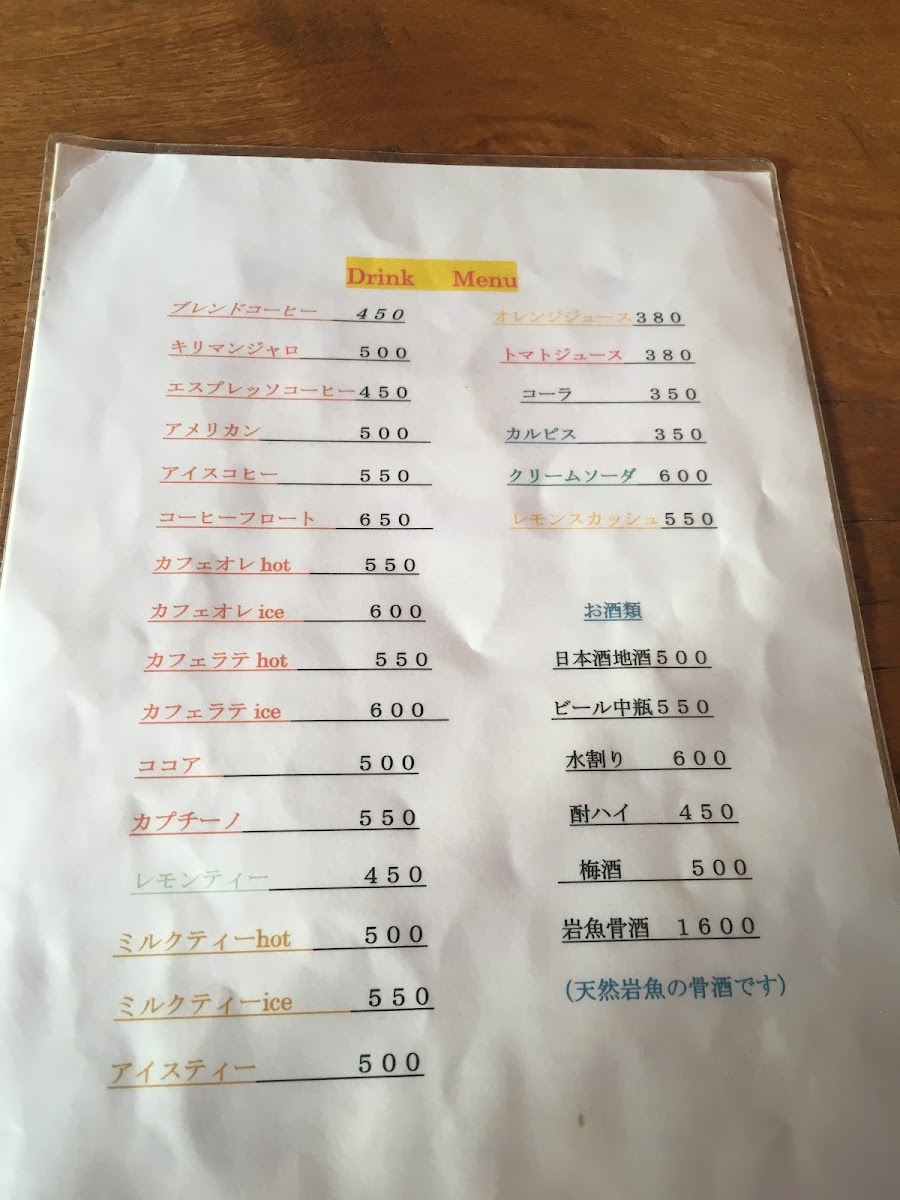 Drink Menu
ブレンドコーヒー 450
キリマンジャロ 500
エスプレッソコーヒー450
アメリカン 500
アイスコヒー 550
コーヒーフロート 650
カフェオレ hot 550
カフェオレ ice 600
カフェラテ hot 550
カフェラテ ice 600
ココア 500
カプチーノ 550
レモンティー 450
ミルクティーhot 500
ミルクティーice 550
アイスティー 500
オレンジジュース380
トマトジュース 380
コーラ 350
カルピス 350
クリームソーダ 600
レモンスカッシュ550
お酒類
日本酒地酒500
ビール中瓶550
水割り 600
酎ハイ 450
梅酒 500
岩魚骨酒 1600
(天然岩魚の骨酒です)